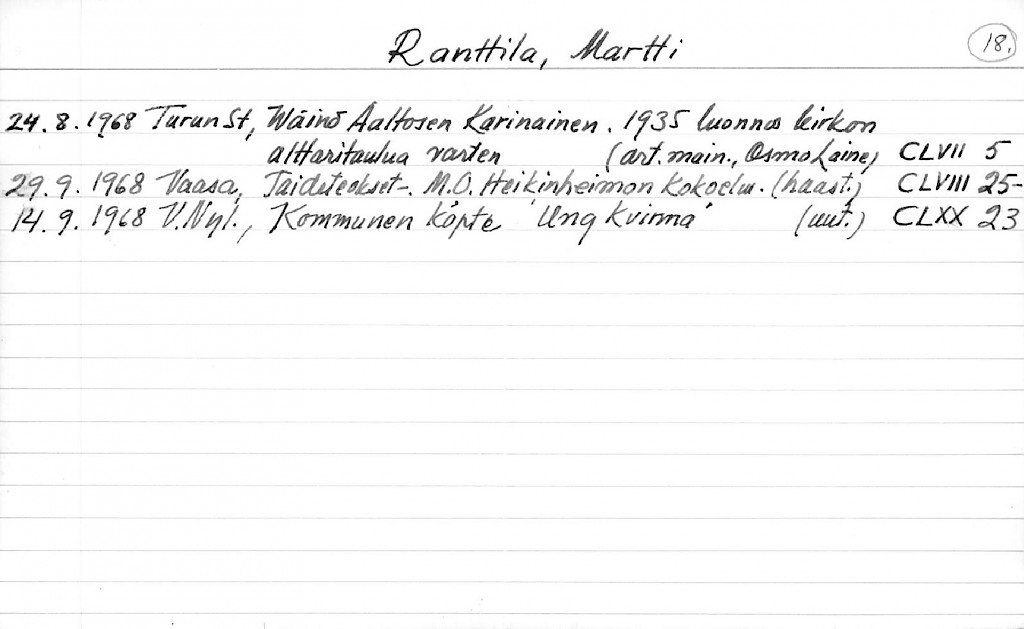 Ranttila, Martti 18.
24.8.1968 Turun St, Wäinö Aaltosen Karinainen. 1935 luonnos kirkon
alttaritaulua varten (art. main., Osmo Laine) CLVII 5
29.9.1968 Vaasa, Taideteokset-. M.O. Heikinheimon kokoelm. (haast.) CLVIII 25-
14.9.1968 V.Nyl., Kommunen köpte "Ung kvinna" (uut.) CLXX 23